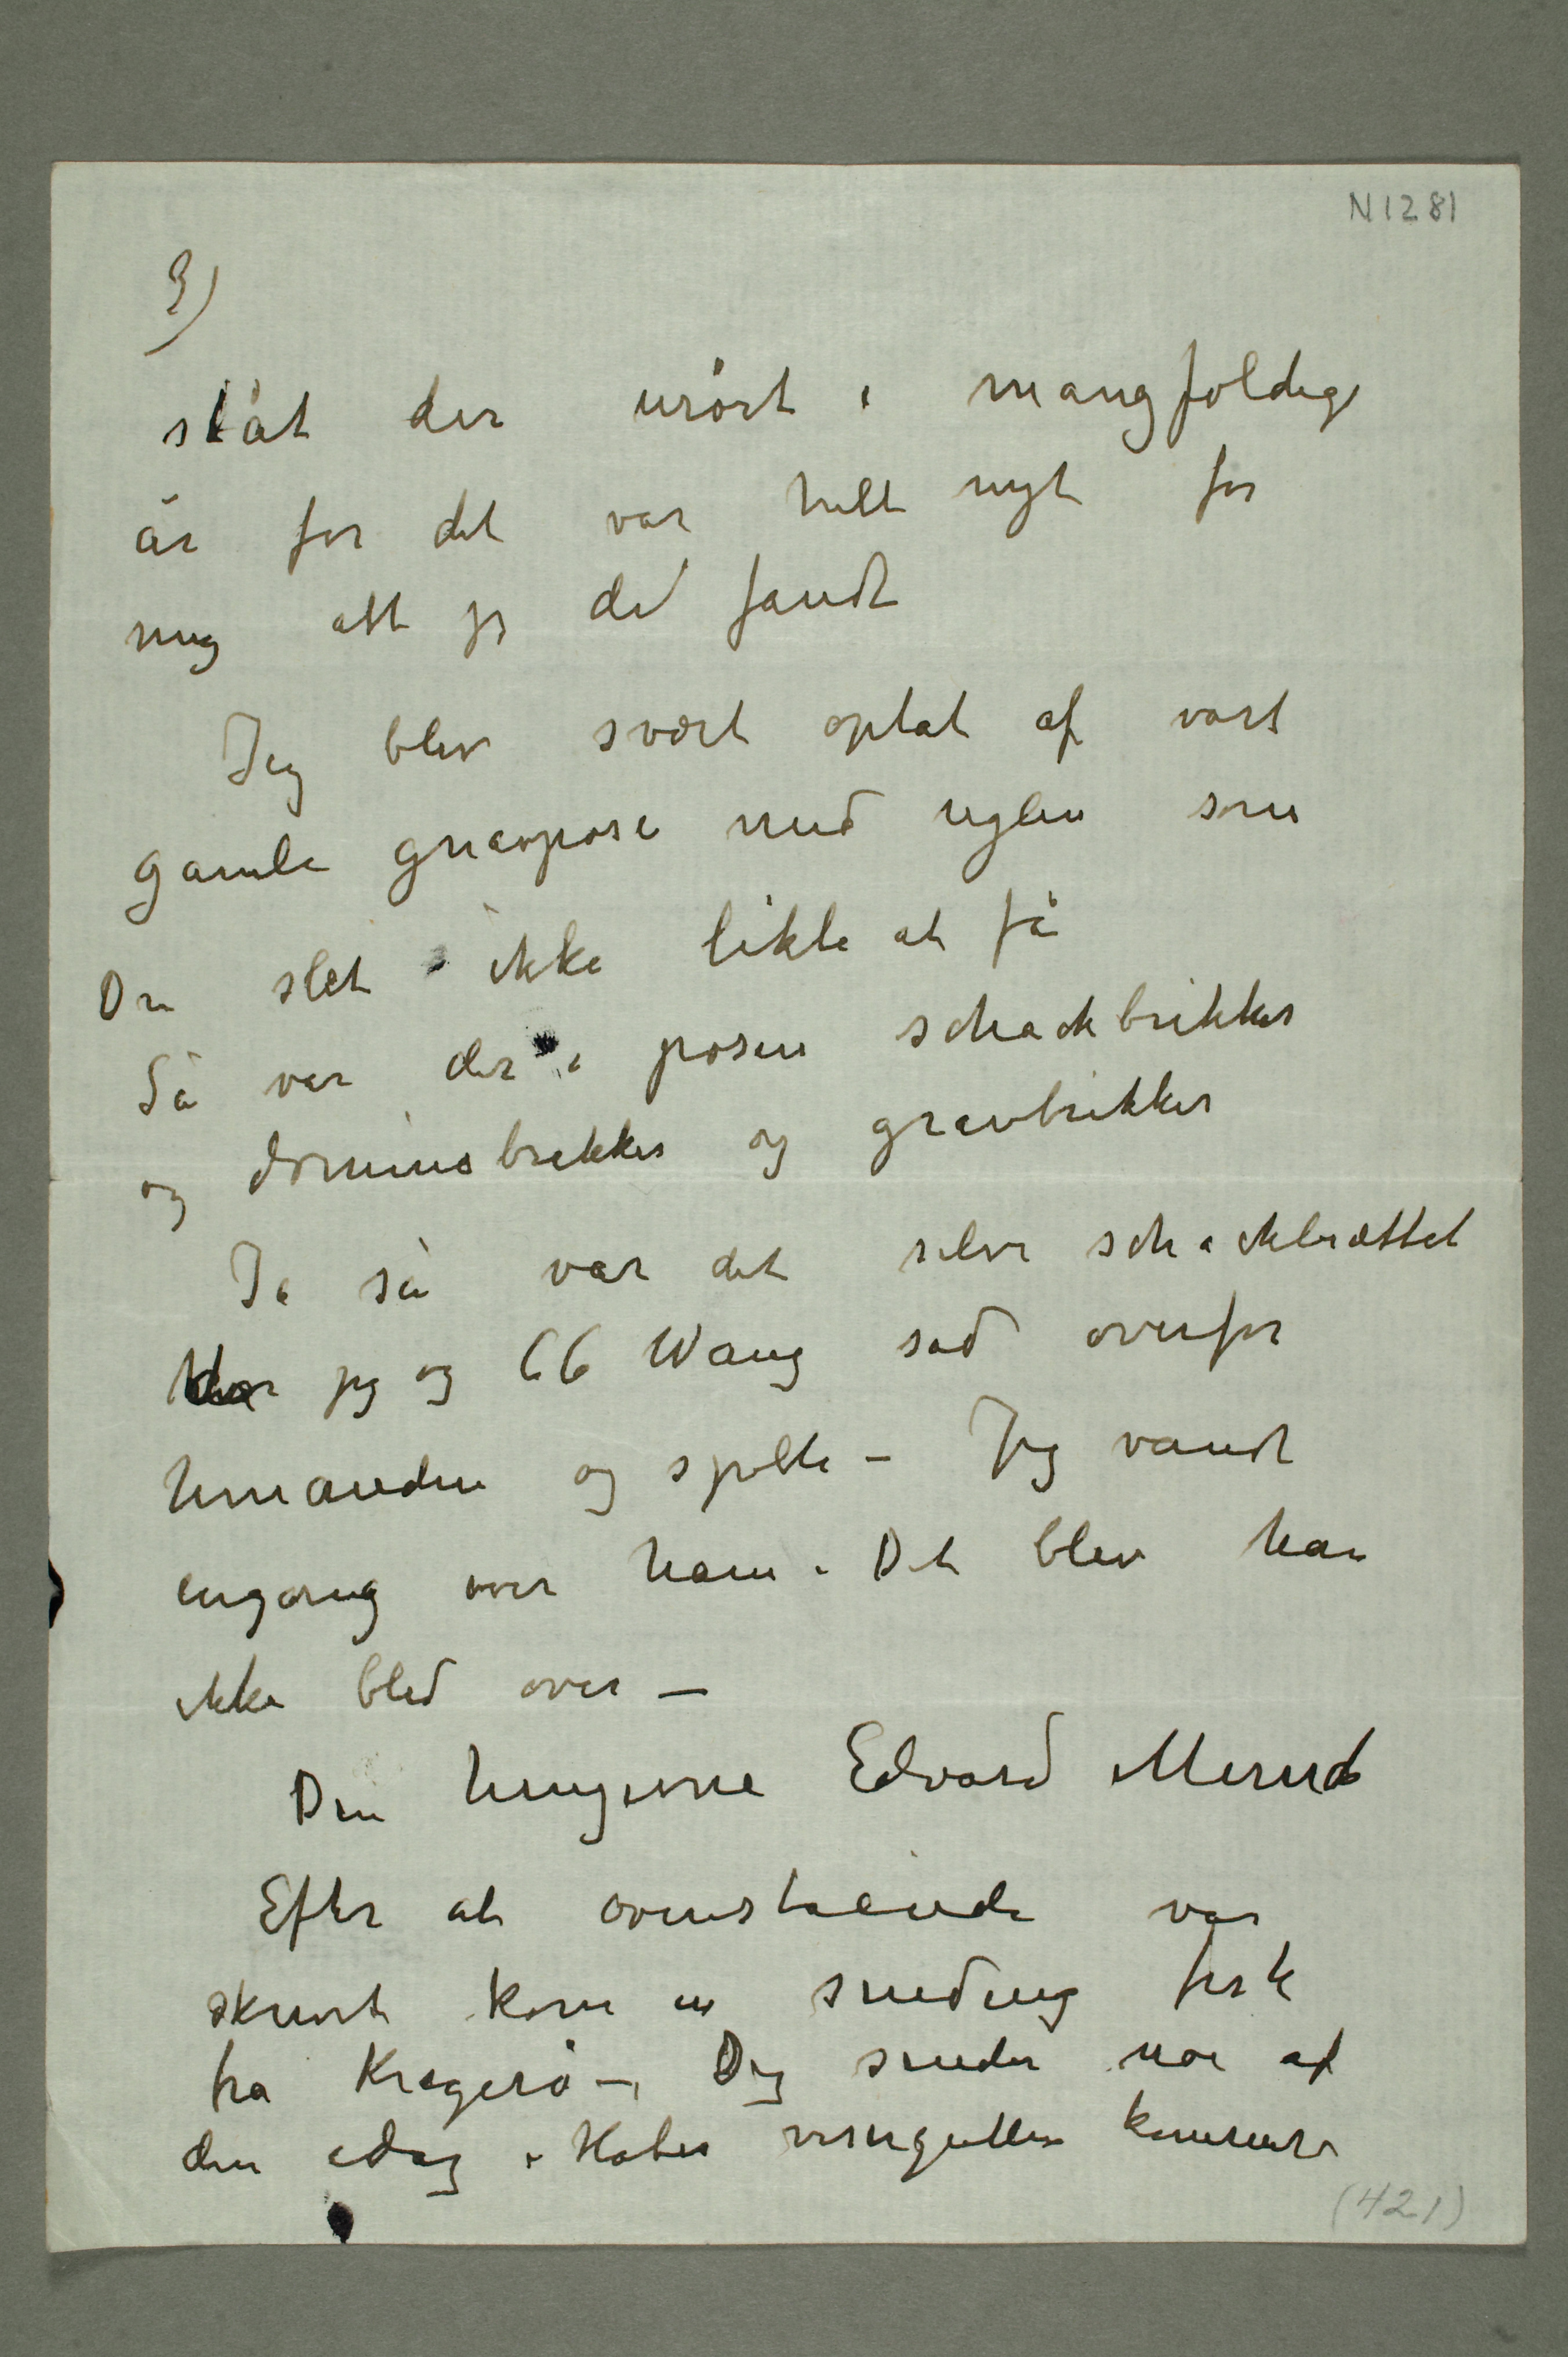 N 1281
3)
ståt der urørt i mangfoldige
år for det var helt nyt for
mig att jeg det fandt
Jeg blev svært optat af vort
gamle gnavpose med uglen som
Du slet ikke likte at få
Så var der i posen schackbrikker
og dominobrikker og gnavbrikker
Ja så var det selve schackbrættet
hvor jeg og CC Wang sad overfor
hinanden og spilte – Jeg vandt
engang over ham. Det blev han
ikke blid over –
Din hengivne Edvard Munch
Efter at ovenstående var
skrevet kom en sending fisk
fra Kragerø – Jeg sender noe af
den idag. Haber visngutten kommer
(421)